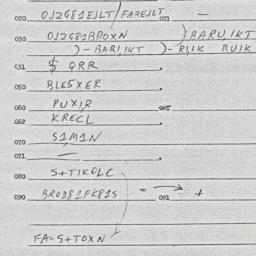 020 OJ2G81EJLT/FAREJLT 021 —
030 OJ2G81BROXN )BARU,IKT
)-BARI,IKT )-RI,IK RUIK
031 $ QRR
050 BLE5XER
060 PUXI,R 065
062 KRECL
070 S1M1N
071 —
080 S+TIKOLC
090 BROD81FK81S = → 091 +
FA-S+TOXN